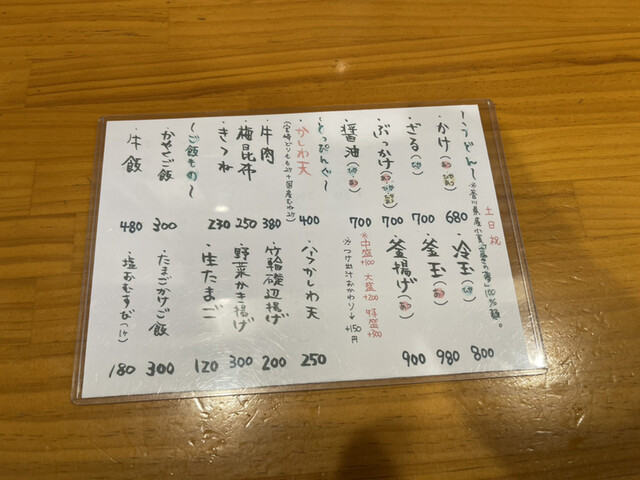 土日祝
〜うどん〜 ※香川県産小麦「さぬきの夢」100%麺。
・かけ 680
・ざる 700
・ぶっかけ 700
・醤油 700
・冷玉 800
・釜玉 980
・釜揚げ 900
※中盛+100 大盛+200 特盛+300
※つけ出汁おかわり→+150円
〜とっぴんぐ〜
・かしわ天 400
・牛肉 380
・梅昆布 250
・きつね 230
・ハーフかしわ天 250
・竹輪磯辺揚げ 200
・野菜かき揚げ 300
・生たまご 120
〜ご飯もの〜
・かやくご飯 300
・牛飯 480
・たまごかけご飯 300
・塩おむすび 180